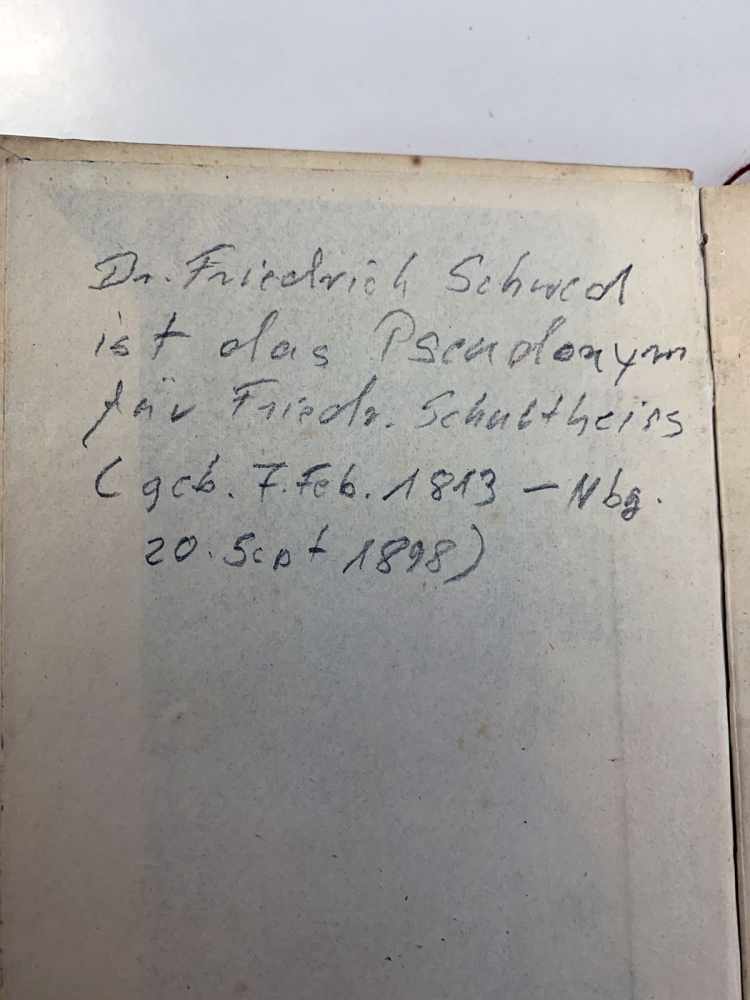 Dr. Friedrich Schwed
ist das Pseudonym
für Friedr. Schultheiss
(geb. 7. Feb. 1813 – Nbg.
20. Sept 1898)